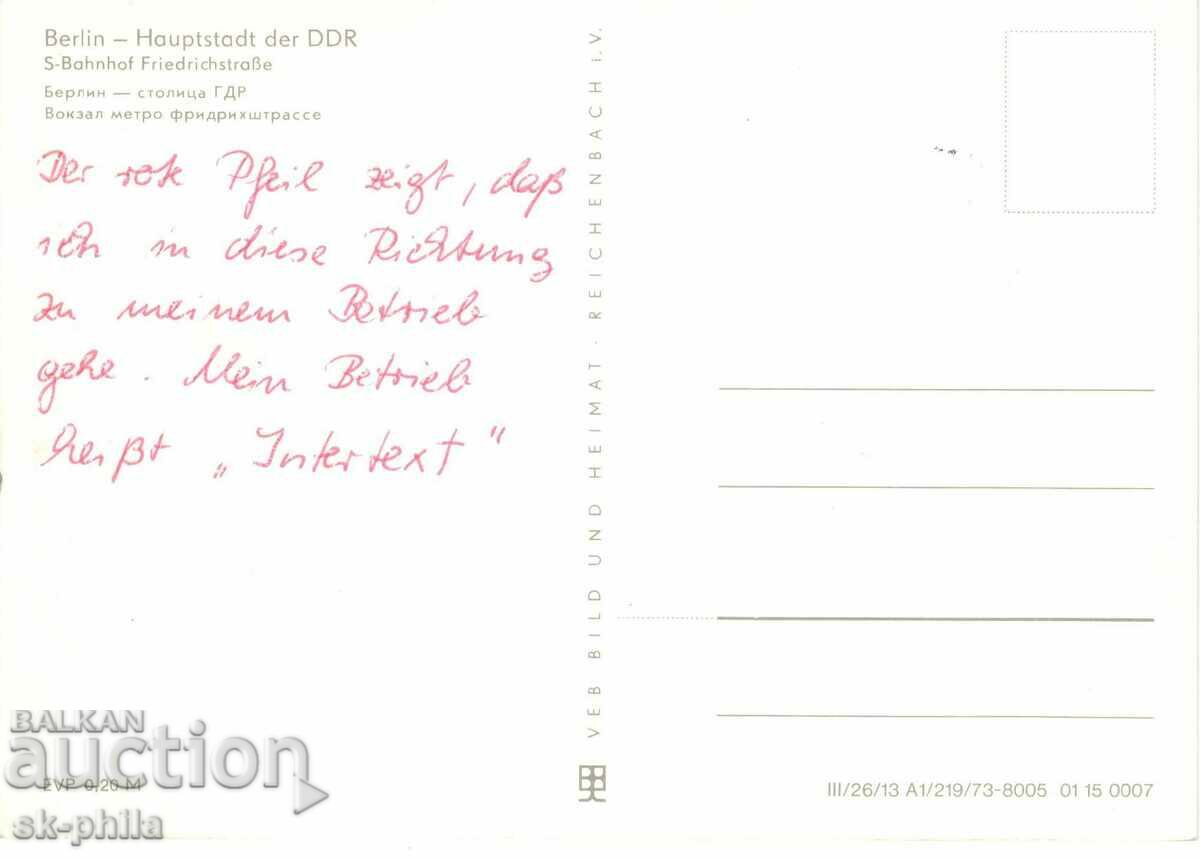 Berlin – Hauptstadt der DDR
S-Bahnhof Friedrichstraße
Берлин — столица ГДР
Вокзал метро фридрихштрассе
Der rote Pfeil zeigt, daß
ich in diese Richtung
zu meinem Betrieb
gehe. Mein Betrieb
heißt „Intertext"
VEB BILD UND HEIMAT · REICHENBACH i.V.
EVP 0,20 M
III/26/13 A1/219/73-8005 01 15 0007
BALKAN
auction
sk-phila